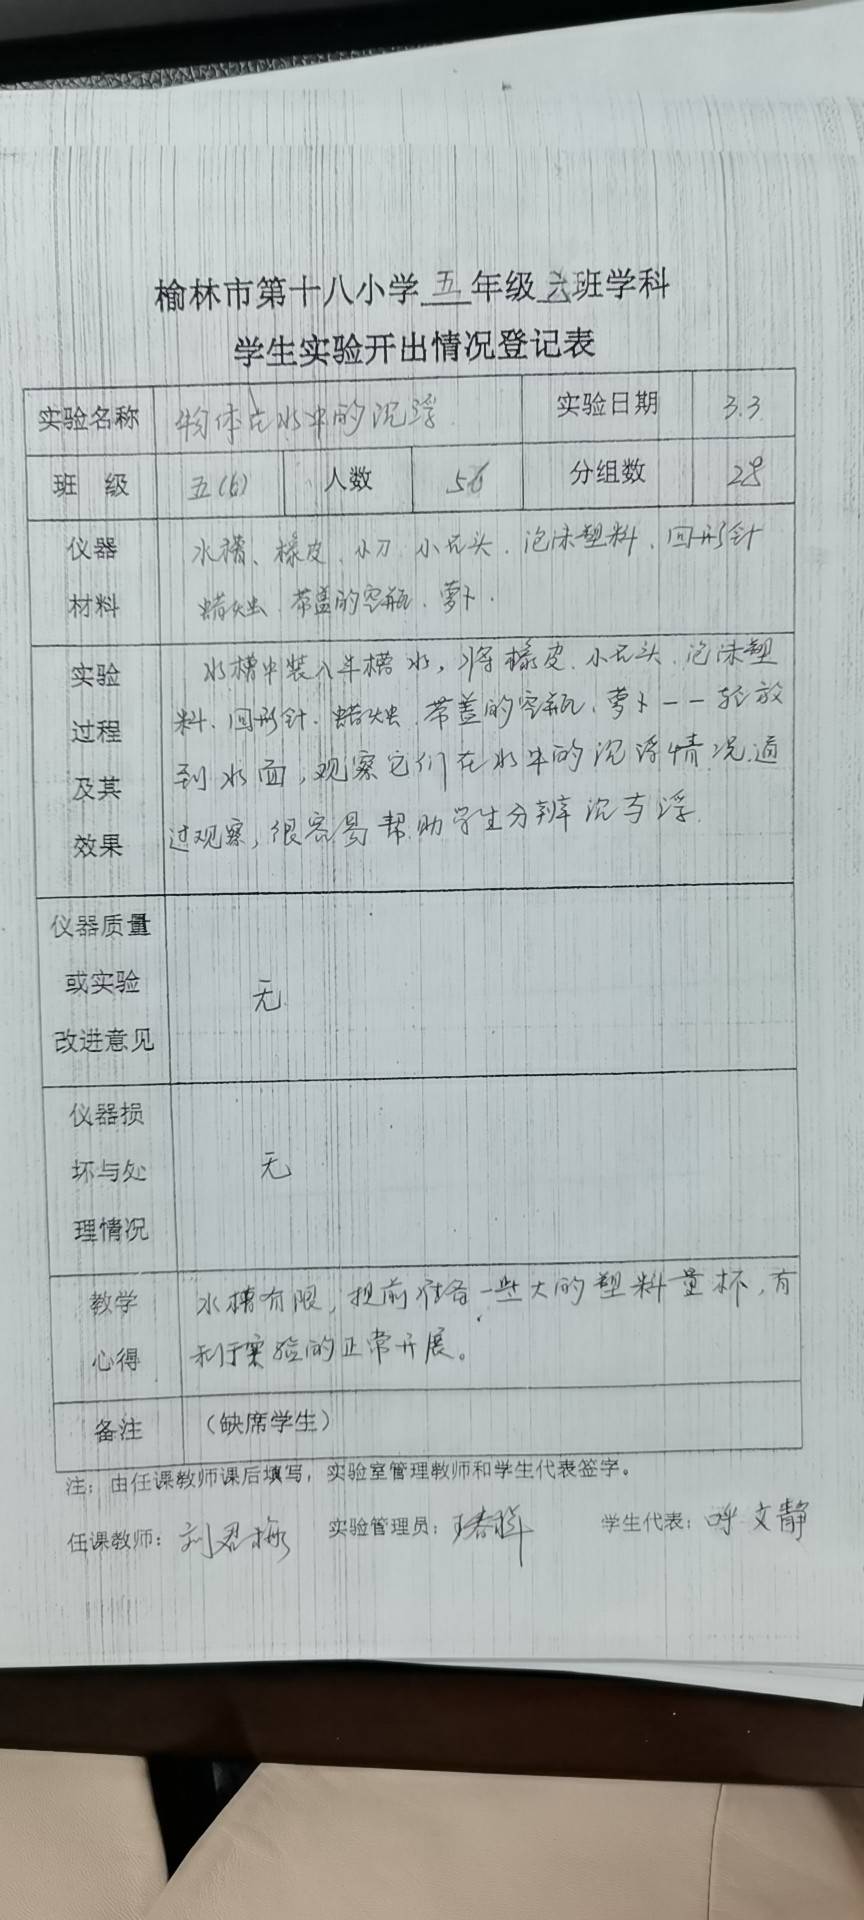 榆林市第十八小学五年级六班学科
学生实验开出情况登记表
实验名称 物体在水中的沉浮 实验日期 3.3
班 级 五(6) 人数 56 分组数 28
仪器 水槽、橡皮、小刀、小石头、泡沫塑料、回形针
材料 蜡烛、带盖的空瓶、萝卜.
实验 水槽中装入半槽水，将橡皮、小石头、泡沫塑
过程 料、回形针、蜡烛、带盖的空瓶、萝卜一一轻放
及其 到水面，观察它们在水中的沉浮情况,通
效果 过观察，很容易帮助学生分辨沉与浮.
仪器质量
或实验 无
改进意见
仪器损
坏与处 无
理情况
教学 水槽有限，提前准备一些大的塑料量杯，有
心得 利于实验的正常开展。
备注 （缺席学生）
注：由任课教师课后填写，实验室管理教师和学生代表签字。
任课教师：刘君梅 实验管理员： 学生代表：呼文静